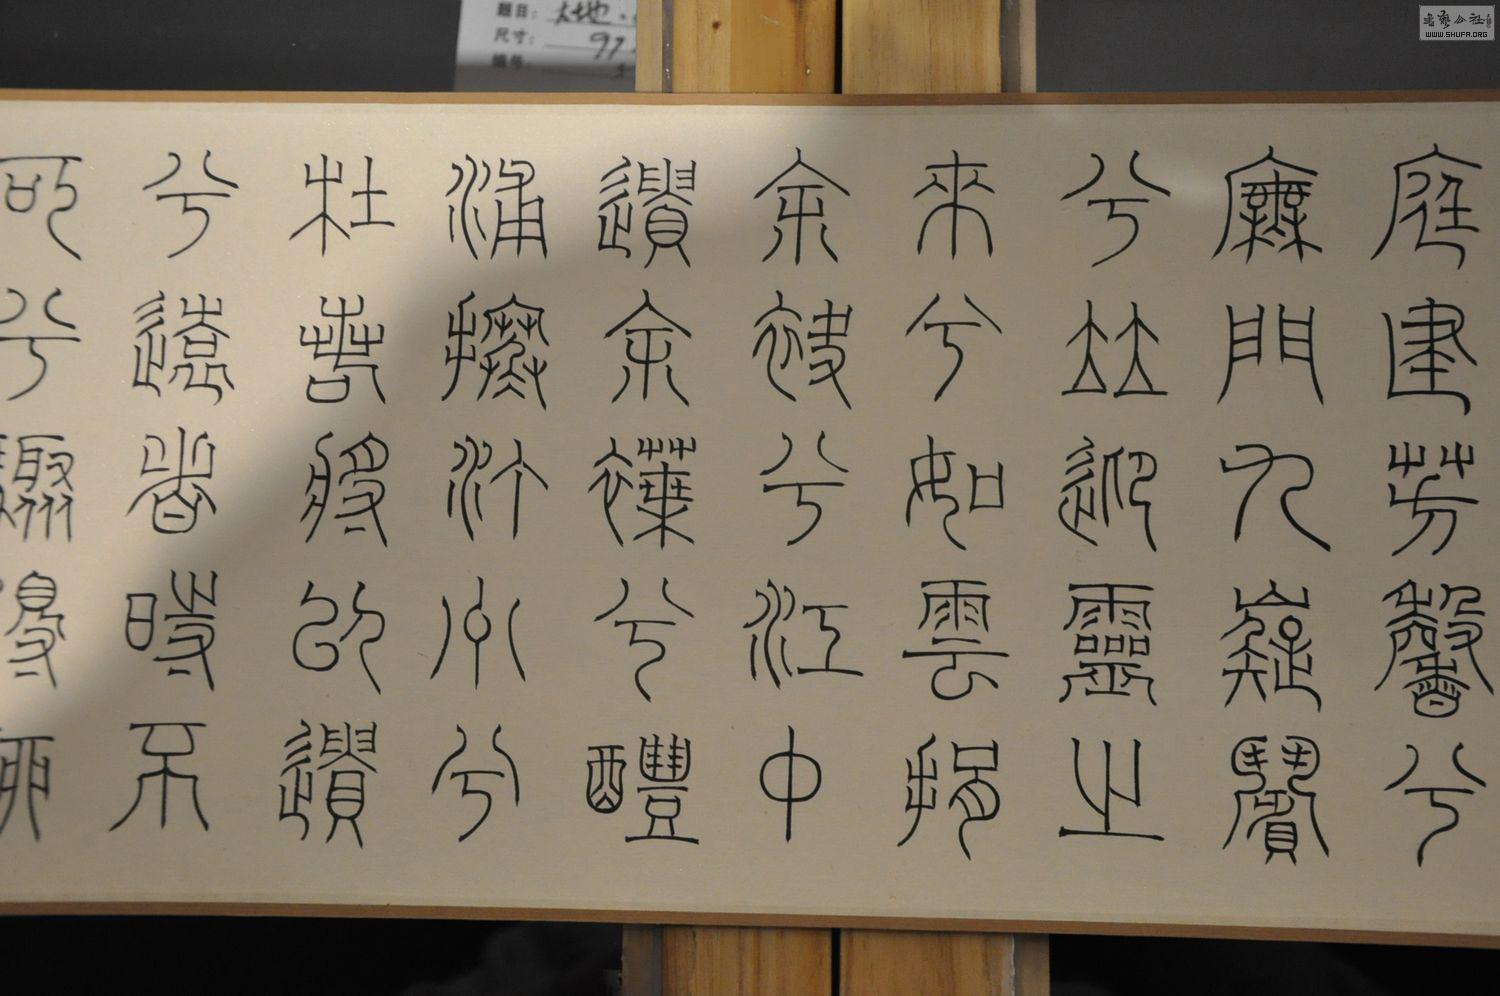 庭建芳馨兮
廡門九嶷繽
兮竝迎靈之
來兮如雲捐
余袂兮江中
遺余褋兮醴
浦搴汀州兮
杜若將以遺
兮遠者時不
可兮驟得聊
题目：
尺寸：97
编号：
WWW.SHUFA.ORG